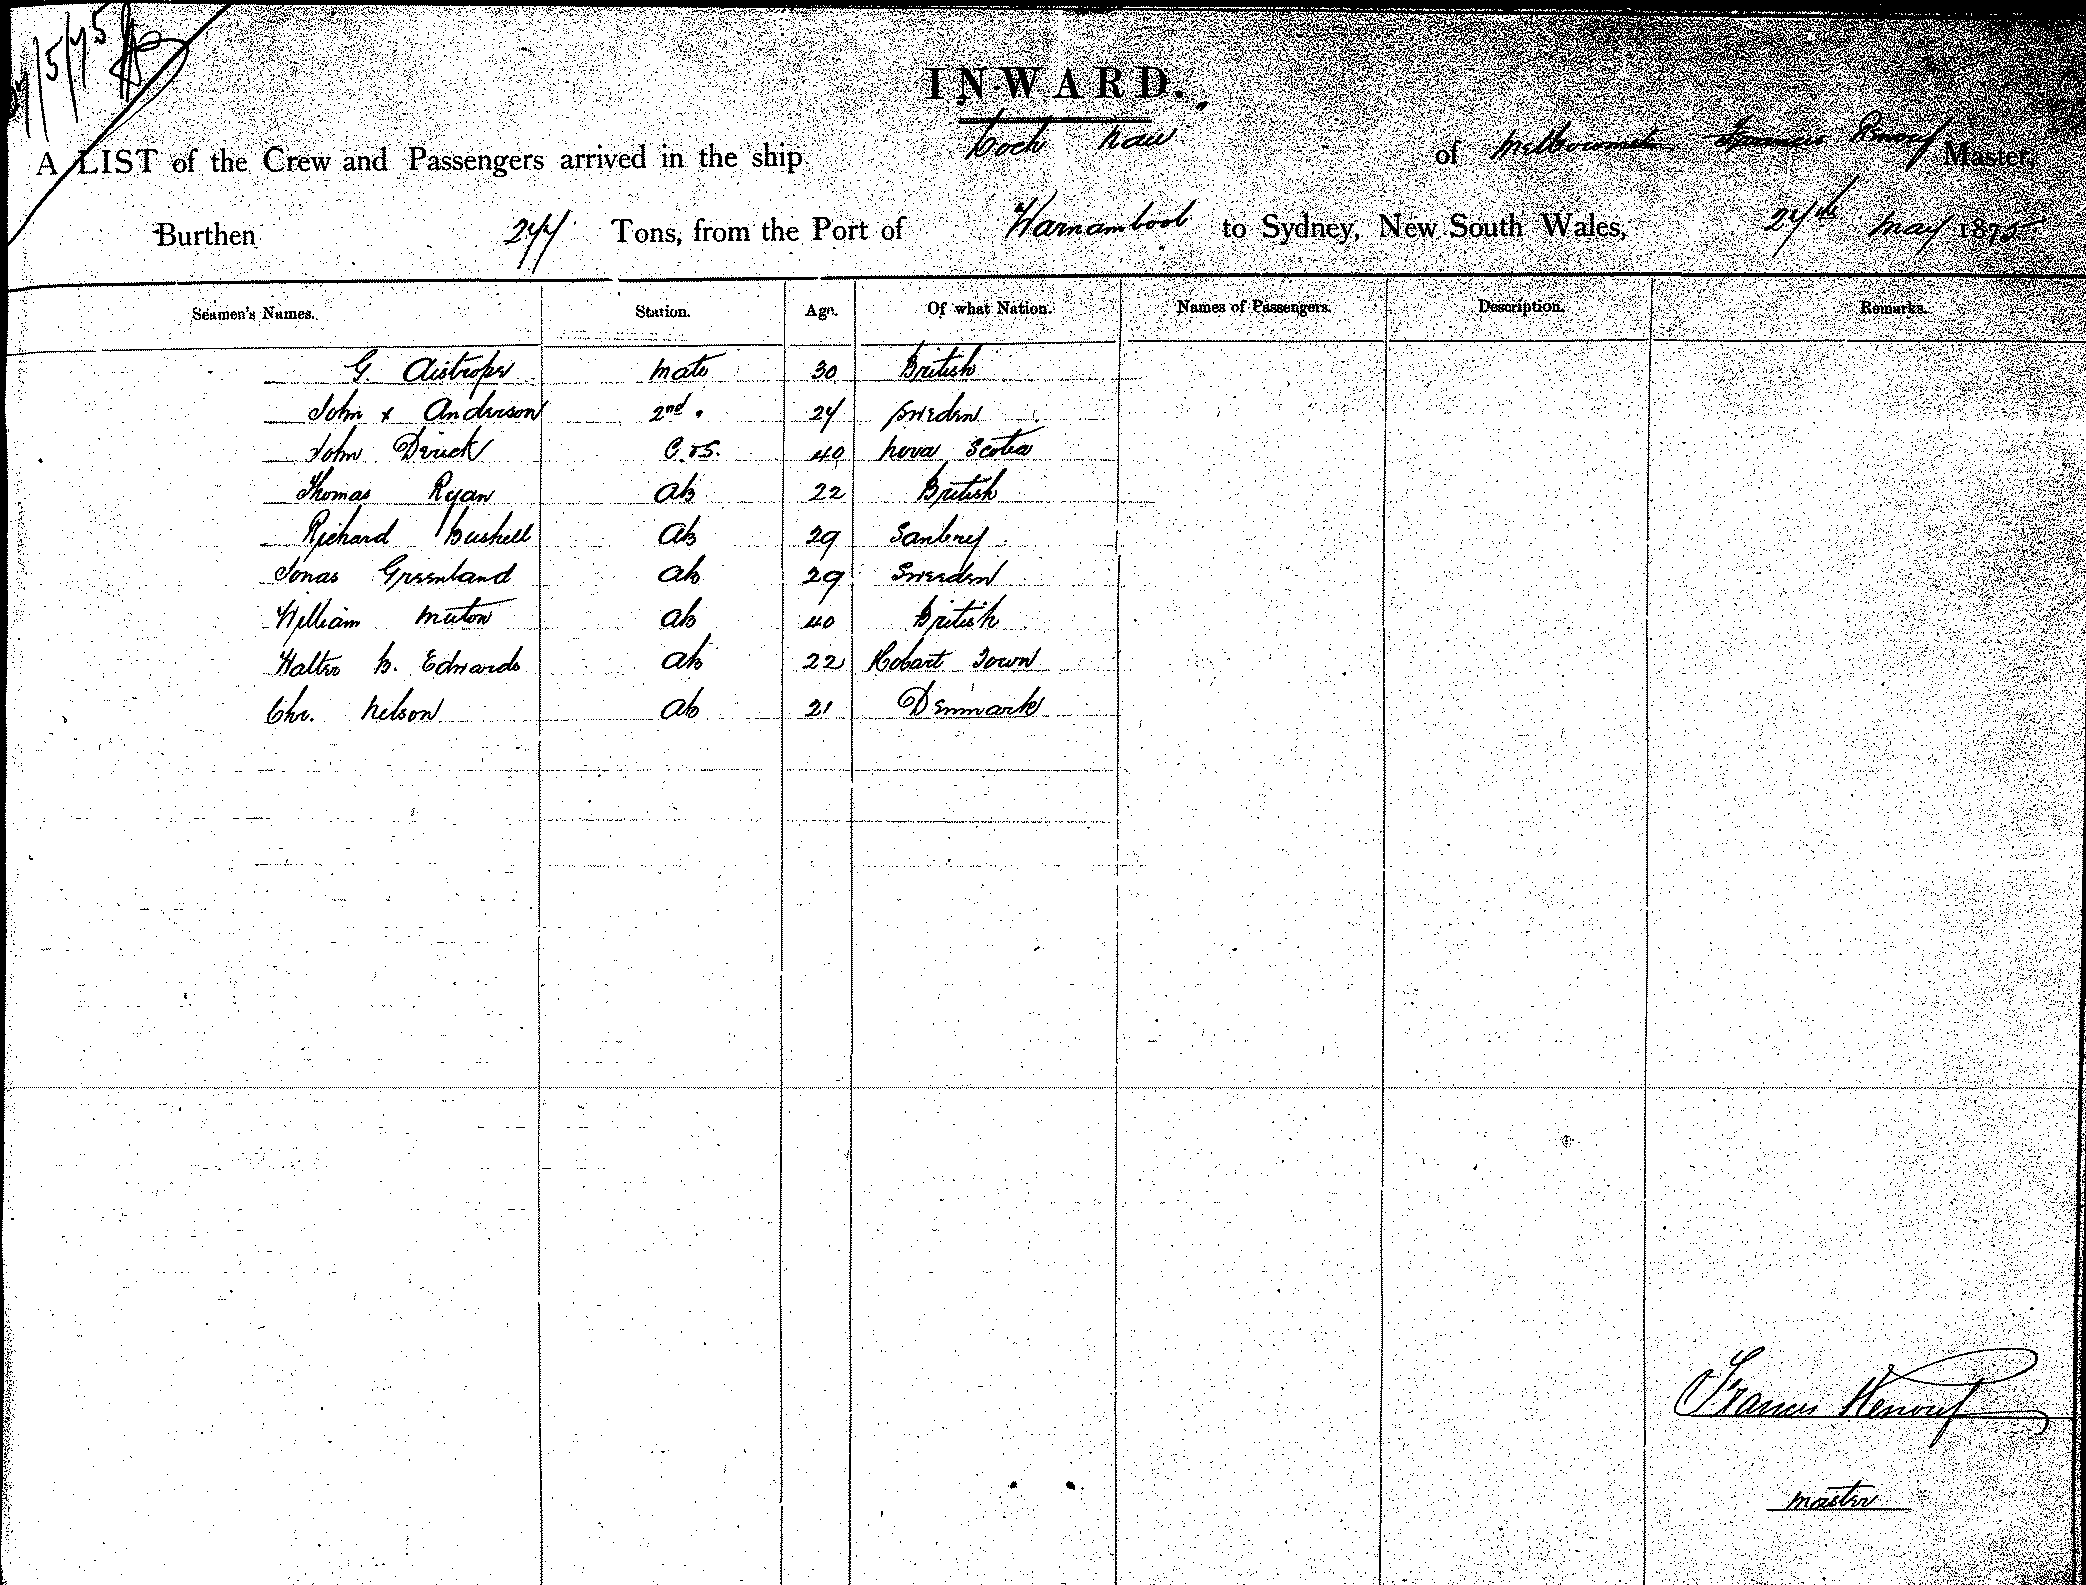 27/5/75
INWARD.
A LIST of the Crew and Passengers arrived in the ship Loch Naw of Melbourne Francis Renouf Master,
Burthen 247 Tons, from the Port of Warnambool to Sydney, New South Wales, 27th May 1875
Seamen's Names. Station. Age. Of what Nation. Names of Passengers. Description. Remarks.
G. Aistrope Mate 30 British
John Anderson 2nd " 24 Sweden
John Derick C & S. 40 Nova Scotia
Thomas Ryan Ab 22 British
Richard Bushell Ab 29
Jonas Greenland Ab 29 Sweeden
William Ab 40 British
Walter B. Edwards Ab 22 Hobart Town
Chr. Nelson Ab 21 Denmark
Francis Renouf
Master